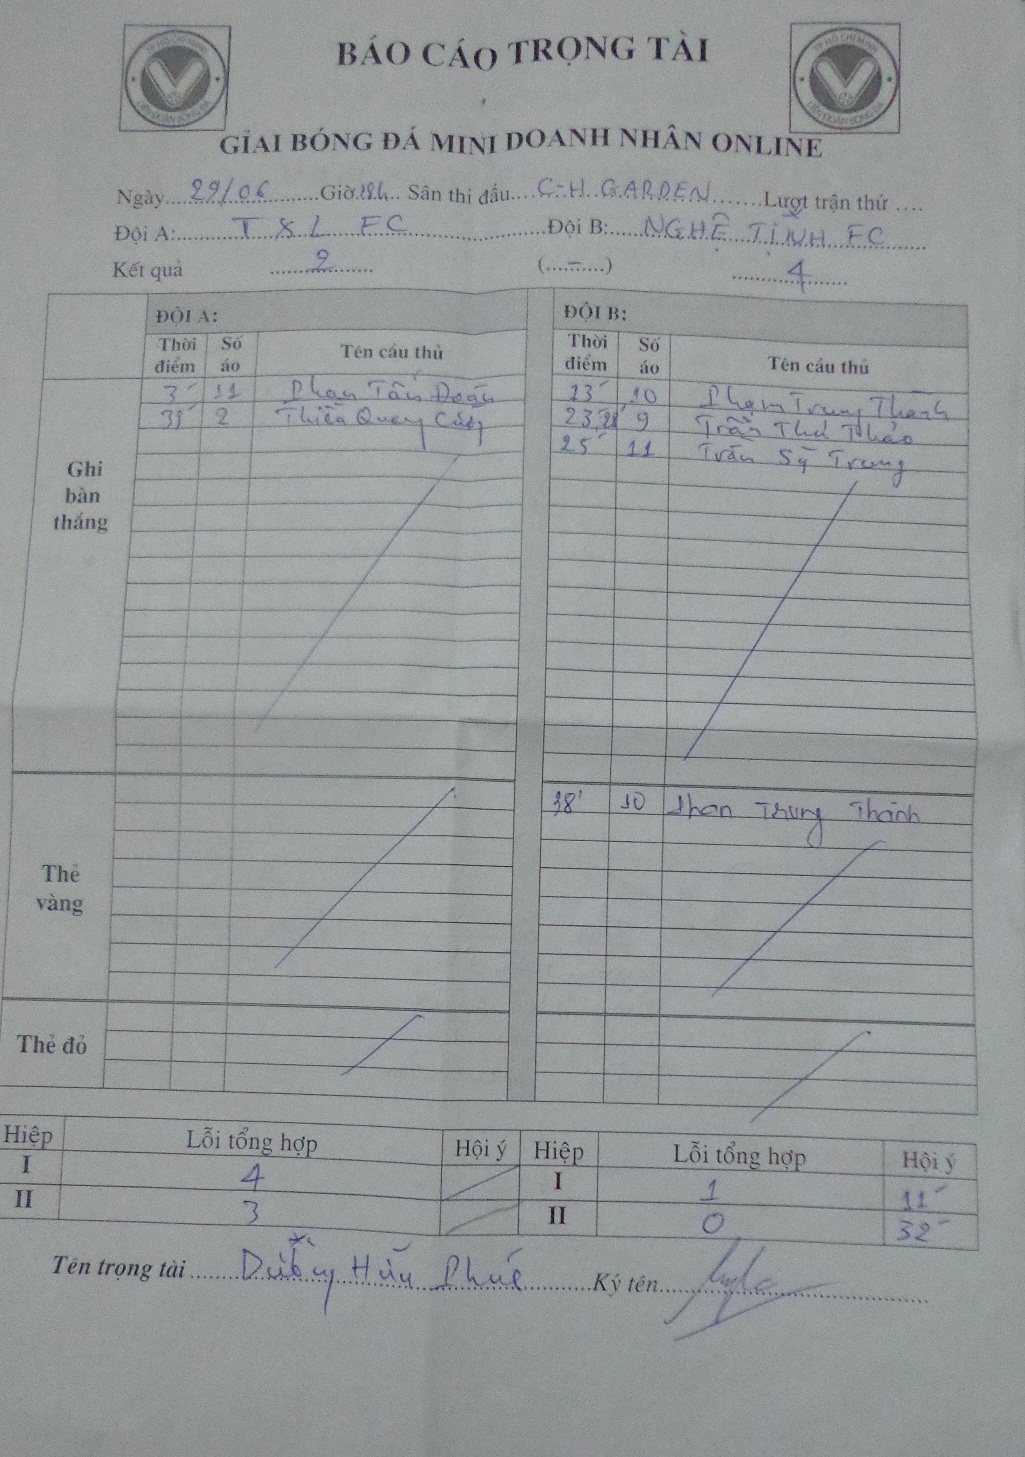 BÁO CÁO TRỌNG TÀI
GIẢI BÓNG ĐÁ MINI DOANH NHÂN ONLINE
Ngày 29/06 Giờ 18h Sân thi đấu C-H GARDEN Lượt trận thứ ....
Đội A: T X L FC Đội B: NGHỆ TĨNH FC
Kết quả 2 (-) 4
ĐỘI A: ĐỘI B:
Thời điểm Số áo Tên cầu thủ Thời điểm Số áo Tên cầu thủ
Ghi bàn thắng
3' 11 Phạm Tấn Đoàn 13' 10 Phạm Trung Thành
2 Thiều Quang 23, 28' 9 Trần Thư Thảo
25' 11 Trần Sỹ Trung
Thẻ vàng
38' 10 Phan Trung Thành
Thẻ đỏ
Hiệp Lỗi tổng hợp Hội ý Hiệp Lỗi tổng hợp Hội ý
I 4 I 1 11'
II 3 II 0 32'
Tên trọng tài Hữu Phúc Ký tên